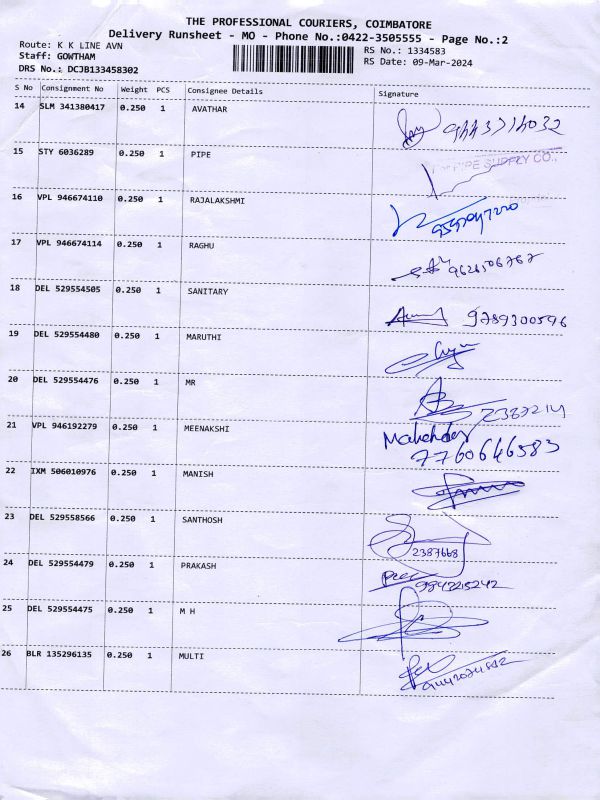 THE PROFESSIONAL COURIERS, COIMBATORE
Delivery Runsheet - MO - Phone No.:0422-3505555 - Page No.:2
Route: K K LINE AVN
RS No.: 1334583
Staff: GOWTHAM
RS Date: 09-Mar-2024
DRS No.: DCJB133458302
S No Consignment No Weight PCS Consignee Details Signature
14 SLM 341380417 0.250 1 AVATHAR
15 STY 6036289 0.250 1 PIPE PIPE SUPPLY CO.,
16 VPL 946674110 0.250 1 RAJALAKSHMI
17 VPL 946674114 0.250 1 RAGHU 9626506767
18 DEL 529554505 0.250 1 SANITARY 9789300596
19 DEL 529554480 0.250 1 MARUTHI
20 DEL 529554476 0.250 1 MR
21 VPL 946192279 0.250 1 MEENAKSHI
7760646583
22 IXM 506010976 0.250 1 MANISH
23 DEL 529558566 0.250 1 SANTHOSH
2387668
24 DEL 529554479 0.250 1 PRAKASH
25 DEL 529554475 0.250 1 M H
26 BLR 135296135 0.250 1 MULTI